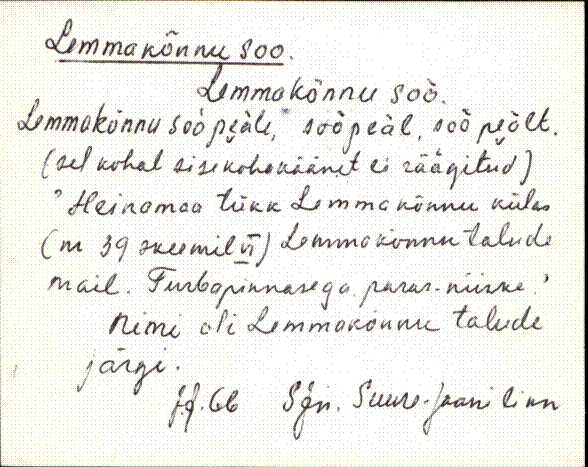 Lemmakõnnu soo.
Lemmakõnnu soò.
Lemmakõnnu soò peäle, soò peäl, soò peält.
(sel kohal sisekohakäänet ei räägitud)
"Heinamaa tükk Lemmakõnnu külas
(nr 39 skeemil VI) Lemmakõnnu talude
mail. Turbapinnasega, paras-niiske."
Nimi oli Lemmakõnnu talude
järgi.
66 SJn. Suure-Jaani linn